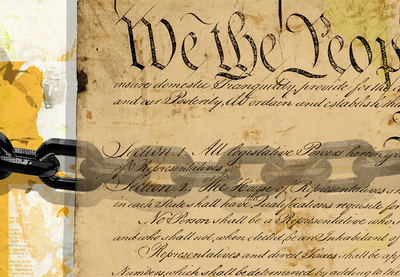 We the Peop
insure domestic Tranquility, provide for the
and our Posterity, do ordain and establish this
Section. 1. All legislative Powers herein gr
of Representatives.
Section. 2. The House of Representatives
in each State shall have Qualifications requisite for
No Person shall be a Representative who s
and who shall not, when elected, be an Inhabitant of
Representatives and direct Taxes shall be ap
Numbers, which shall be determined by adding to the